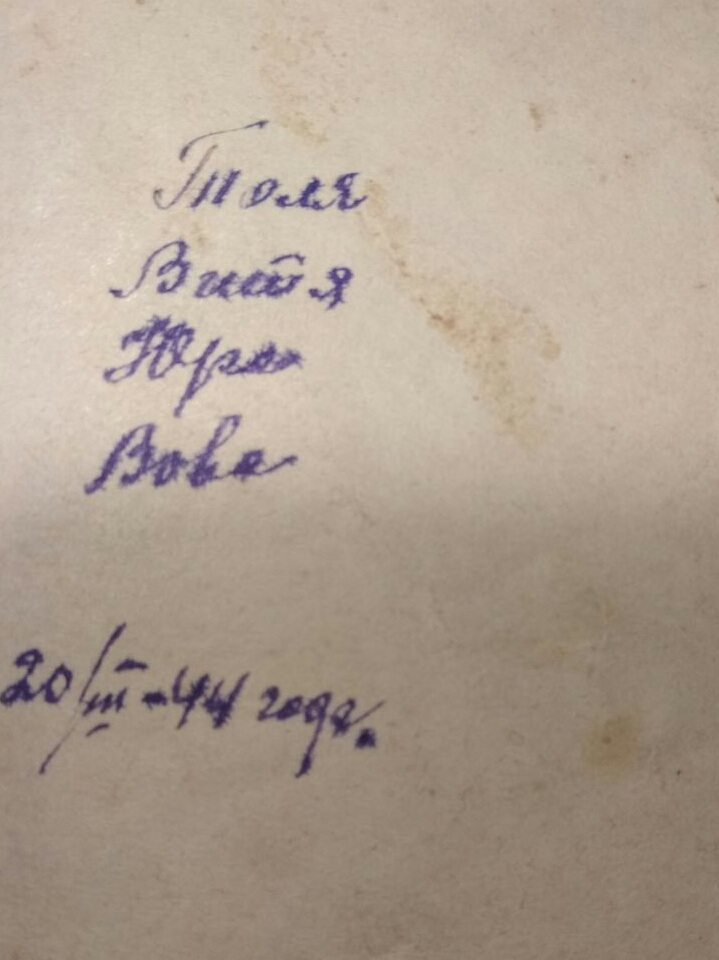 Толя
Витя
Юра
Вова
20/III-44 года.